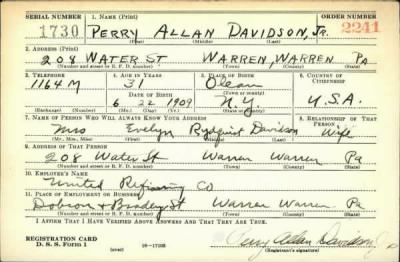 SERIAL NUMBER 1. NAME (Print) ORDER NUMBER
1730 PERRY ALLAN DAVIDSON, JR. 2241
(First) (Middle) (Last)
2. ADDRESS (Print)
208 WATER ST WARREN, WARREN PA
(Number and street or R. F. D. number) (Town) (County) (State)
3. TELEPHONE 4. AGE IN YEARS 5. PLACE OF BIRTH 6. COUNTRY OF CITIZENSHIP
1164 M 31 Olean
DATE OF BIRTH (Town or county)
6 22 1909 N.Y. U.S.A.
(Exchange) (Number) (Mo.) (Day) (Yr.) (State or country)
7. NAME OF PERSON WHO WILL ALWAYS KNOW YOUR ADDRESS 8. RELATIONSHIP OF THAT PERSON
Mrs Evelyn Rydquist Davidson Wife
(Mr., Mrs., Miss) (First) (Middle) (Last)
9. ADDRESS OF THAT PERSON
208 Water St Warren Warren Pa
(Number and street or R. F. D. number) (Town) (County) (State)
10. EMPLOYER'S NAME
United Refining Co
11. PLACE OF EMPLOYMENT OR BUSINESS
Dobson & Bradley St Warren Warren Pa
(Number and street or R. F. D. number) (Town) (County) (State)
I AFFIRM THAT I HAVE VERIFIED ABOVE ANSWERS AND THAT THEY ARE TRUE.
REGISTRATION CARD
D. S. S. Form 1 (over) 16—17105 Perry Allan Davidson Jr
(Registrant's signature)